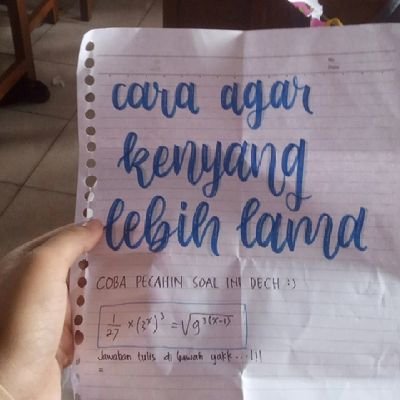 cara agar
kenyang
lebih lama
COBA PECAHIN SOAL INI DECH :)
1/27 × (3^x)^3 = √9^3(x-1)
Jawaban tulis di bawah yakk...!!!
=